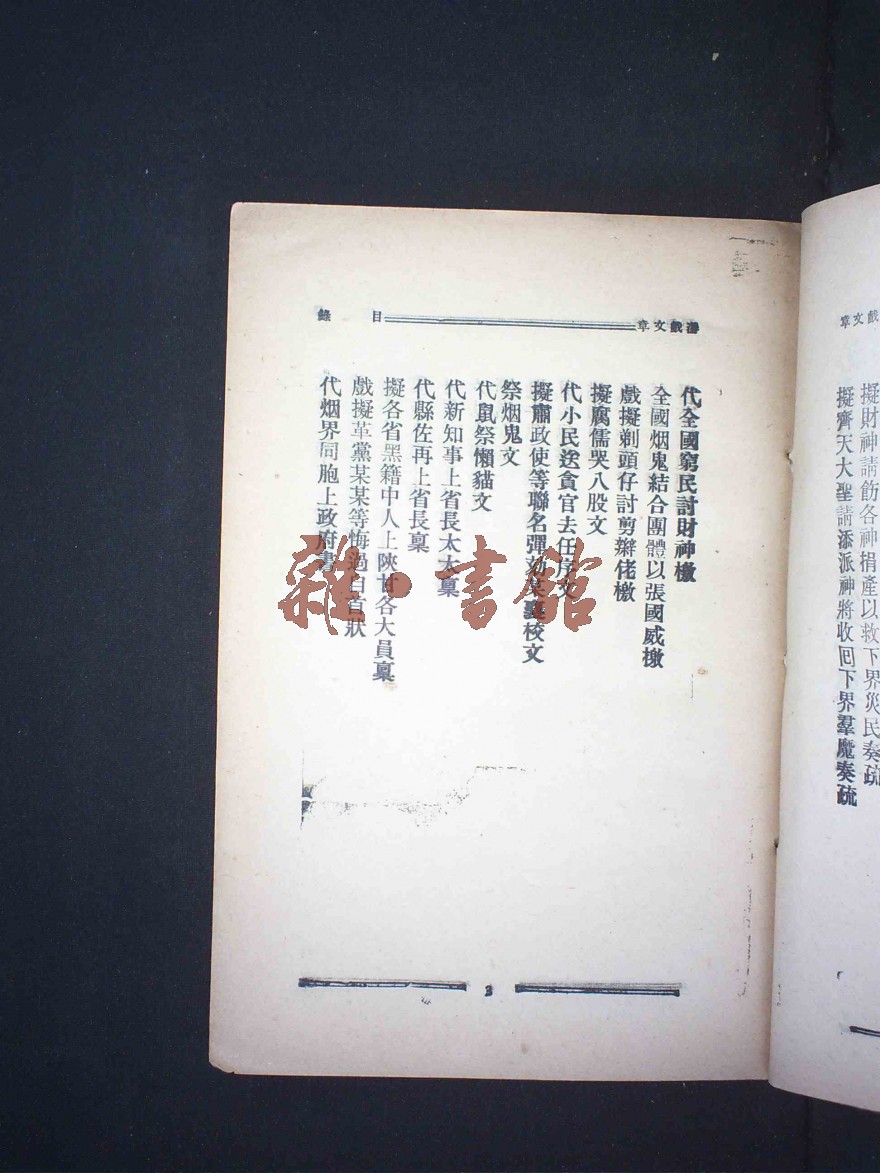 游戲文章
目錄
代全國窮民討財神檄
全國烟鬼結合團體以張國威檄
戲擬剃頭仔討剪辮佬檄
擬腐儒哭八股文
代小民送貪官去任序文
擬肅政使等聯名彈劾某襄校文
祭烟鬼文
代鼠祭懶貓文
代新知事上省長太太稟
代縣佐再上省長稟
擬各省黑籍中人上陝甘各大員稟
戲擬革黨某某等悔過自首狀
代烟界同胞上政府書
雜·書館
戲文章
擬財神請飭各神捐產以救下界災民奏疏
擬齊天大聖請添派神將收回下界羣魔奏疏